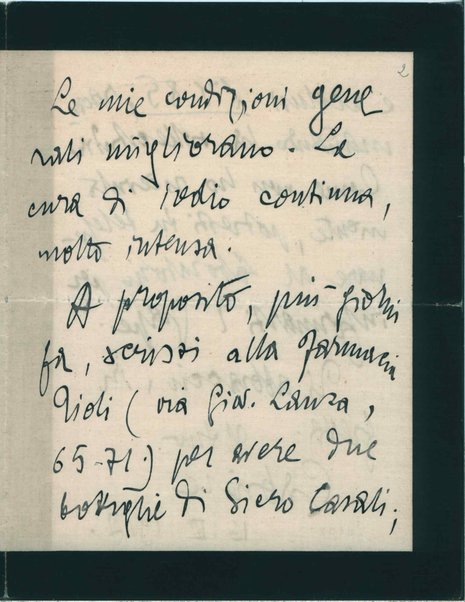 2
Le mie condizioni gene
rali migliorano. La
cura di iodio continua,
molto intensa.
A proposito, più giorni
fa, scrissi alla Farmacia
(via Giov. Lanza,
65-71.) per avere due
bottiglie di Siero Casali;